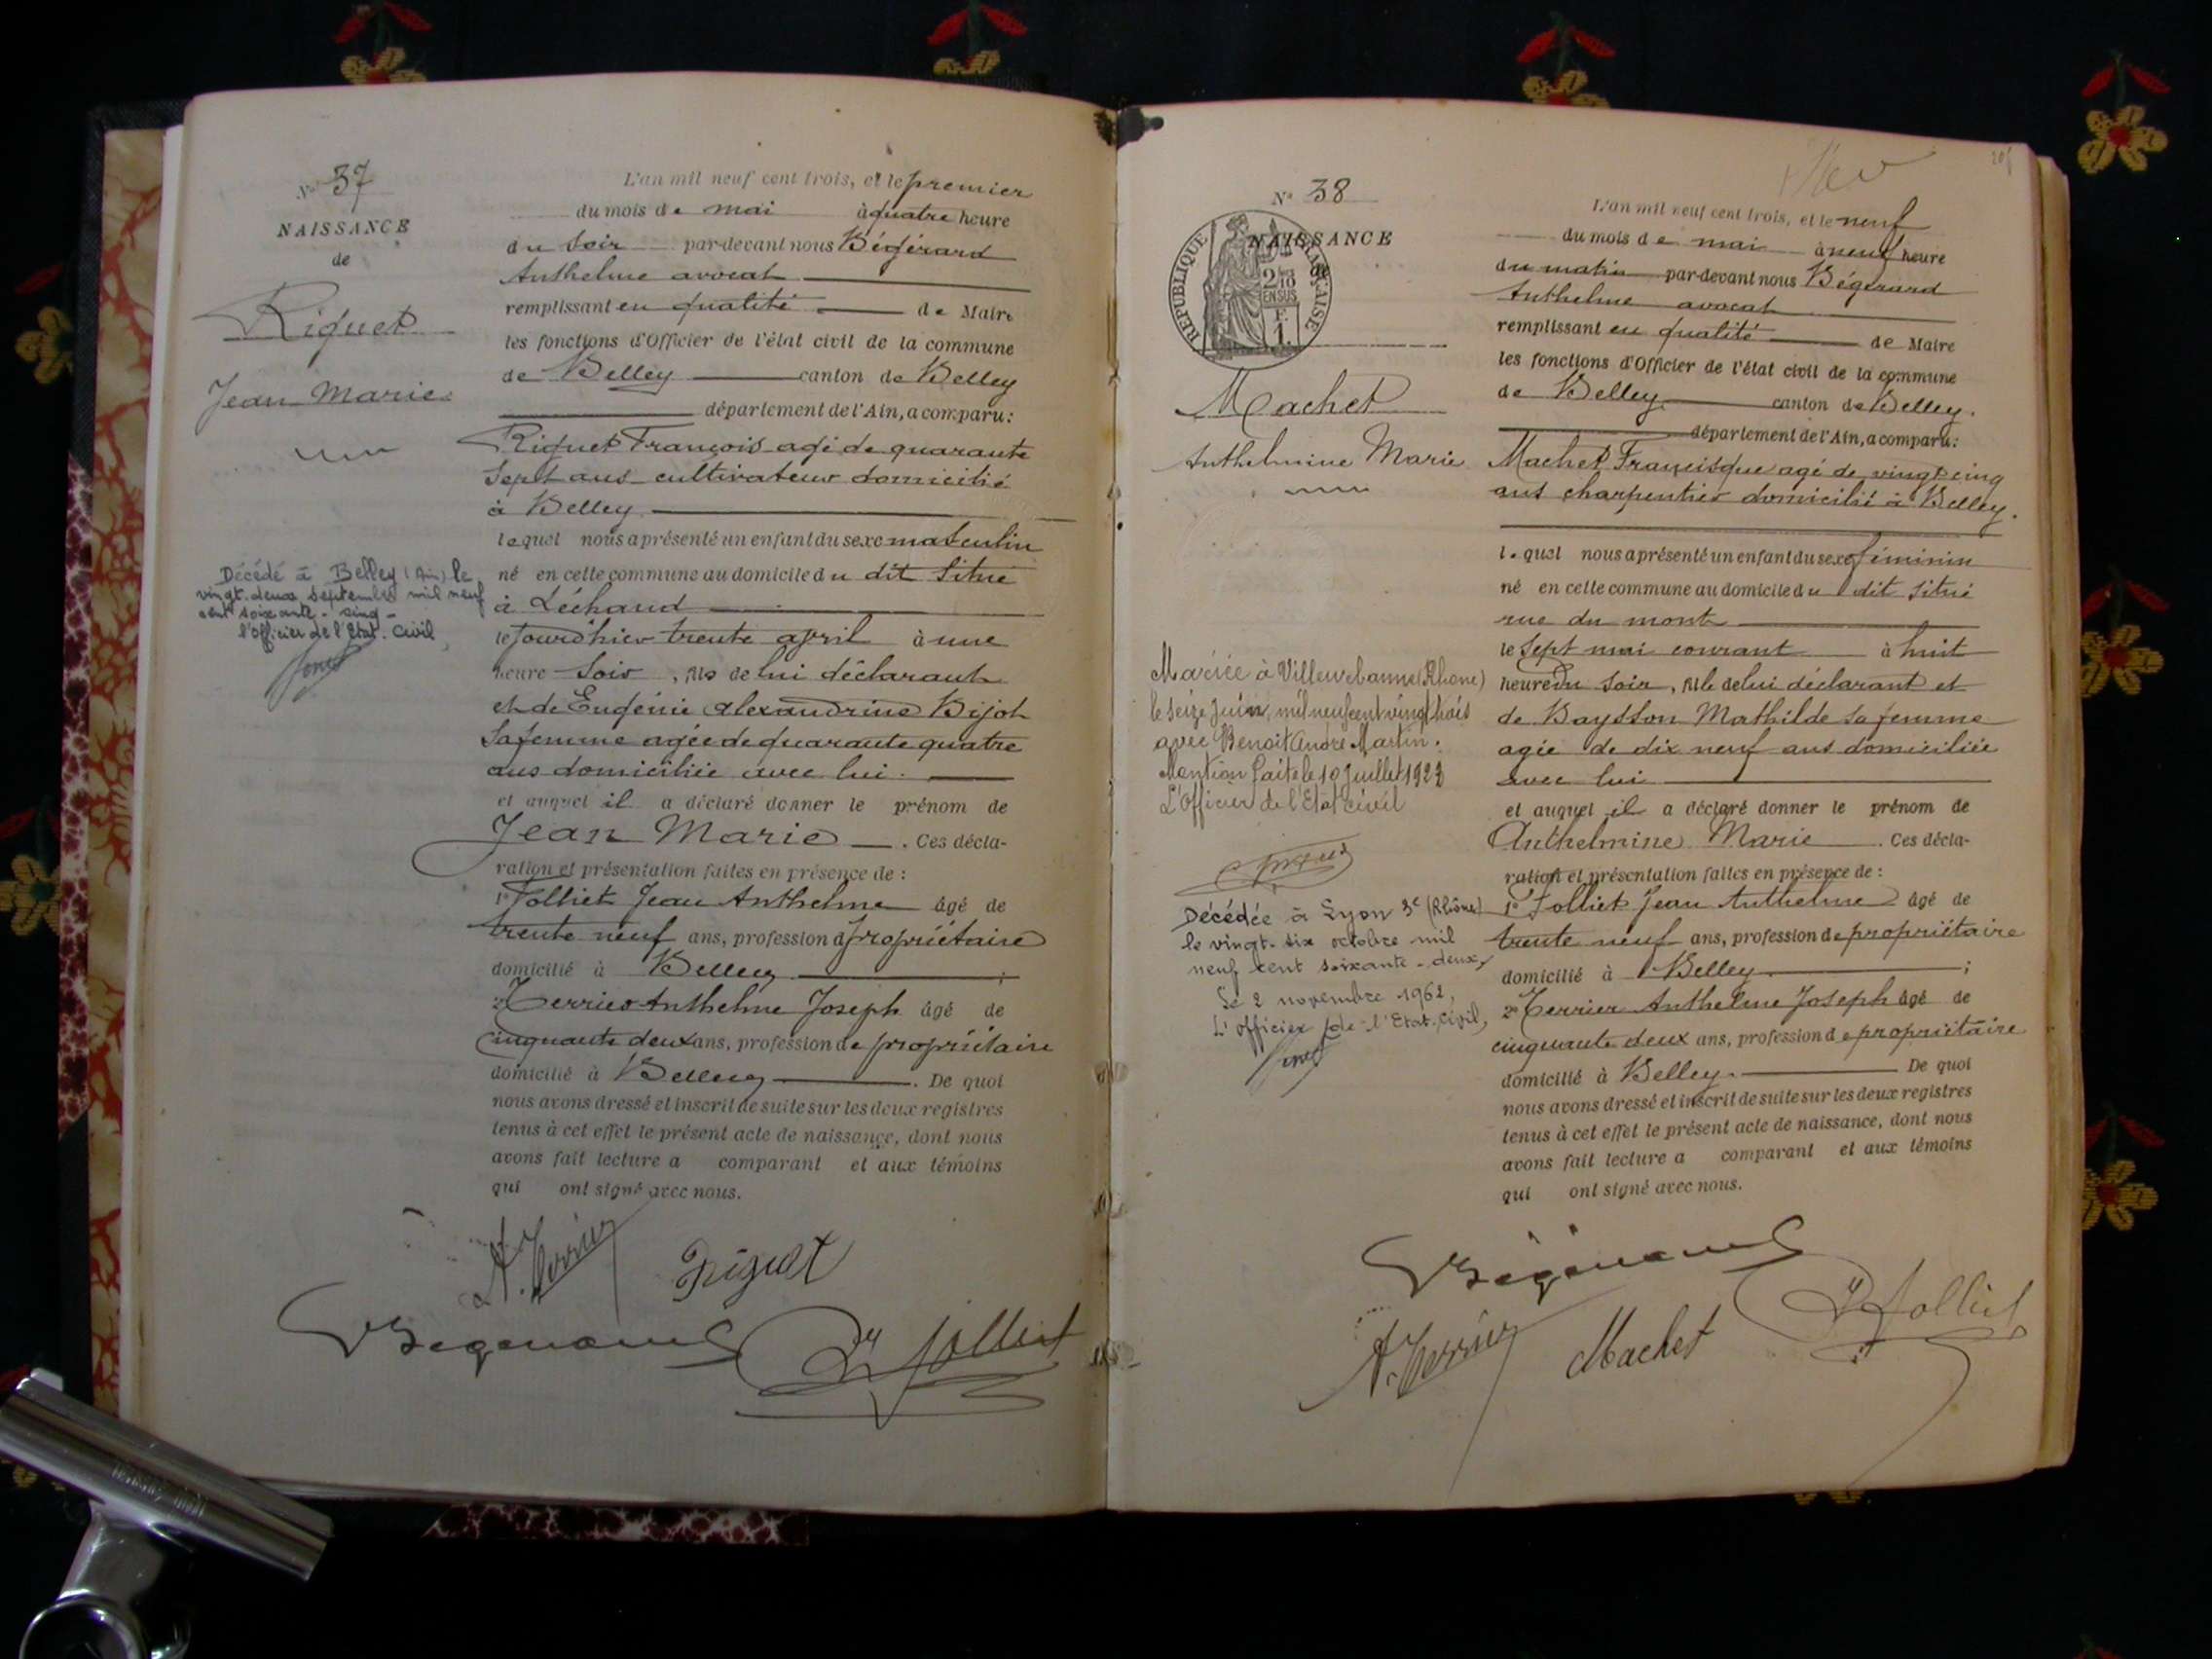 N° 37
NAISSANCE
de
Riguet
Jean Marie
Décédé à Belley (Ain) le
vingt-deux septembre mil neuf
cent soixante-cinq-
l'Officier de l'Etat-Civil,
L'an mil neuf cent trois, et le premier
du mois de mai à quatre heure
du soir par-devant nous Bégérard
Anthelme avocat
remplissant en qualité de Maire
les fonctions d'Officier de l'état civil de la commune
de Belley canton de Belley
département de l'Ain, a comparu:
Riguet François agé de quarante
sept ans cultivateur domicilié
à Belley
lequel nous a présenté un enfant du sexe masculin
né en cette commune au domicile du dit situé
à
le jourd'hier trente april à une
heure soir, fils de lui déclarant
et de Eugénie Alexandrine Bijot
sa femme agée de quarante quatre
ans domiciliée avec lui.
et auquel il a déclaré donner le prénom de
Jean Marie. Ces décla-
ration et présentation faites en présence de :
1° Folliet Jean Anthelme âgé de
trente neuf ans, profession d propriétaire
domicilié à Belley ;
2° Terrier Anthelme Joseph âgé de
cinquante deux ans, profession de propriétaire
domicilié à Belley. De quoi
nous avons dressé et inscrit de suite sur les deux registres
tenus à cet effet le présent acte de naissance, dont nous
avons fait lecture a comparant et aux témoins
qui ont signé avec nous.
A. Terrier Riguet
Bégérard Folliet
N° 38
NAISSANCE
de
REPUBLIQUE FRANÇAISE
2/10
EN SUS
F.
1.
Machet
Anthelmine Marie
Mariée à Villeurbanne (Rhône)
le seize juin, mil neuf cent vingt trois
avec Benoit André Martin.
Mention faite le 10 Juillet 1923
L'Officier de l'Etat civil
Décédée à Lyon 3e (Rhône)
le vingt-six octobre mil
neuf cent soixante-deux,
Le 2 novembre 1962,
L'officier de l'Etat-Civil,
L'an mil neuf cent trois, et le neuf
du mois de mai à neuf heure
du matin par-devant nous Bégérard
Anthelme avocat
remplissant en qualité de Maire
les fonctions d'Officier de l'état civil de la commune
de Belley canton de Belley.
département de l'Ain, a comparu:
Machet Francisque agé de vingt cinq
ans charpentier domicilié à Belley.
lequel nous a présenté un enfant du sexe féminin
né en cette commune au domicile du dit situé
rue du mont
le sept mai courant à huit
heure du soir, fille de lui déclarant et
de Baysson Mathilde sa femme
agée de dix neuf ans domiciliée
avec lui
et auquel il a déclaré donner le prénom de
Anthelmine Marie. Ces décla-
ration et présentation faites en présence de :
1° Folliet Jean Anthelme âgé de
trente neuf ans, profession de propriétaire
domicilié à Belley. ;
2° Terrier Anthelme Joseph âgé de
cinquante deux ans, profession de propriétaire
domicilié à Belley. De quoi
nous avons dressé et inscrit de suite sur les deux registres
tenus à cet effet le présent acte de naissance, dont nous
avons fait lecture a comparant et aux témoins
qui ont signé avec nous.
Bégérard
A. Terrier Machet Folliet